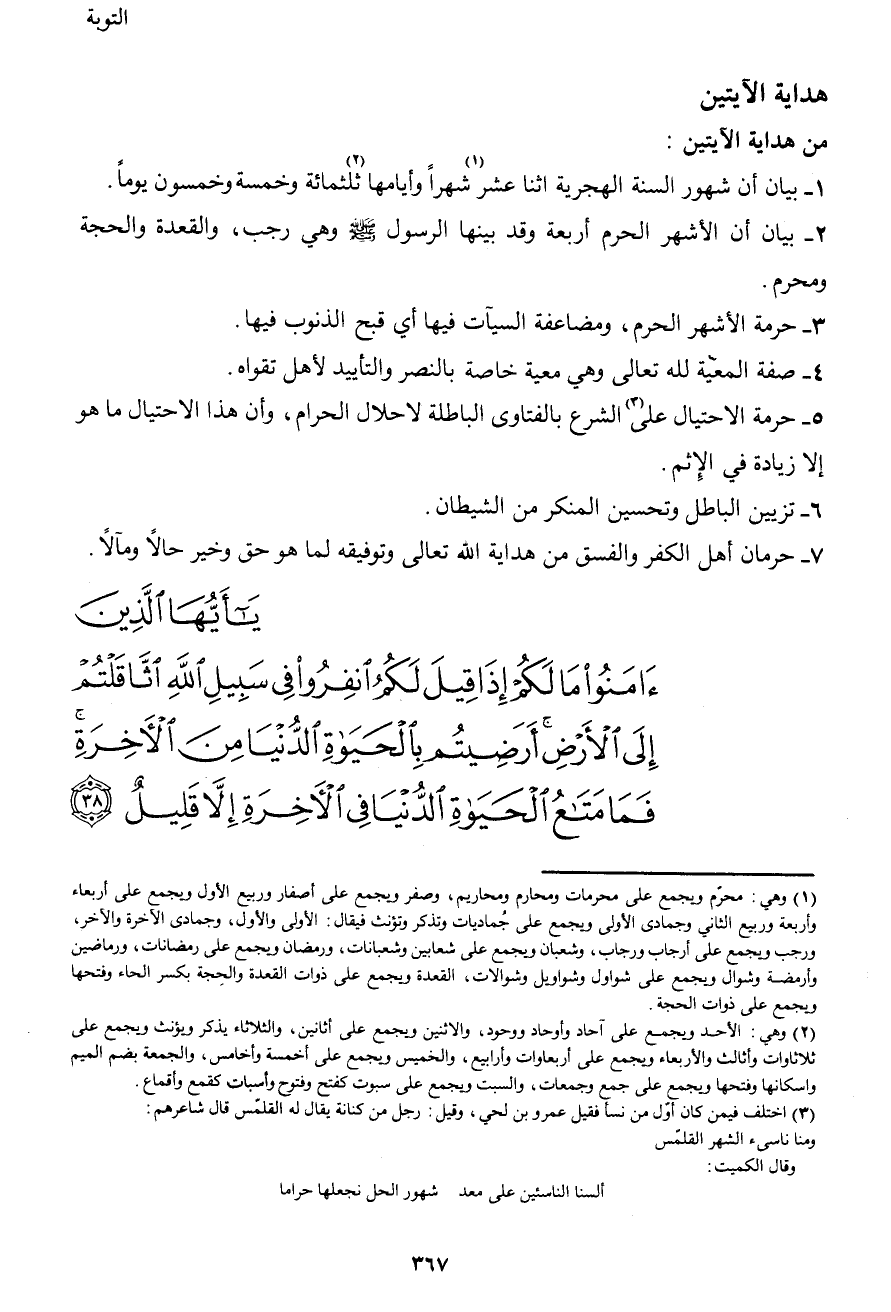 التوبة
هداية الآيتين
من هداية الآيتين :
١ـ بيان أن شهور السنة الهجرية اثنا عشر(١) شهراً وأيامها(٢) ثلثمائة وخمسة وخمسون يوماً.
٢ـ بيان أن الأشهر الحرم أربعة وقد بينها الرسول ﷺ وهي رجب، والقعدة والحجة
ومحرم.
٣ـ حرمة الأشهر الحرم، ومضاعفة السيآت فيها أي قبح الذنوب فيها.
٤ـ صفة المعيّة لله تعالى وهي معية خاصة بالنصر والتأييد لأهل تقواه.
٥ـ حرمة الاحتيال على(٣) الشرع بالفتاوى الباطلة لاحلال الحرام، وأن هذا الاحتيال ما هو
إلا زيادة في الإثم.
٦ـ تزيين الباطل وتحسين المنكر من الشيطان.
٧ـ حرمان أهل الكفر والفسق من هداية الله تعالى وتوفيقه لما هو حق وخير حالاً ومآلاً.
يَٰٓأَيُّهَا ٱلَّذِينَ
ءَامَنُوا۟ مَا لَكُمْ إِذَا قِيلَ لَكُمُ ٱنفِرُوا۟ فِى سَبِيلِ ٱللَّهِ ٱثَّاقَلْتُمْ
إِلَى ٱلْأَرْضِ ۚ أَرَضِيتُم بِٱلْحَيَوٰةِ ٱلدُّنْيَا مِنَ ٱلْأَخِرَةِ ۚ
فَمَا مَتَٰعُ ٱلْحَيَوٰةِ ٱلدُّنْيَا فِى ٱلْأَخِرَةِ إِلَّا قَلِيلٌ ٣٨
(١) وهي: محرّم ويجمع على محرمات ومحارم ومحاريم، وصفر ويجمع على أصفار وربيع الأول ويجمع على أربعاء
وأربعة وربيع الثاني وجمادى الأولى ويجمع على جُماديات وتذكر وتؤنث فيقال: الأولى والأول، وجمادى الآخرة والآخر،
ورجب ويجمع على أرجاب ورجاب، وشعبان ويجمع على شعابين وشعبانات، ورمضان ويجمع على رمضانات، ورماضين
وأرمضة وشوال ويجمع على شواول وشواويل وشوالات، القعدة ويجمع على ذوات القعدة والحِجة بكسر الحاء وفتحها
ويجمع على ذوات الحجة.
(٢) وهي: الأحد ويجمع على آحاد وأوحاد ووحود، والاثنين ويجمع على أثانين، والثلاثاء يذكر ويؤنث ويجمع على
ثلاثاوات وأثالث والأربعاء ويجمع على أربعاوات وأرابيع، والخميس ويجمع على أخمسة وأخامس، والجمعة بضم الميم
واسكانها وفتحها ويجمع على جمع وجمعات، والسبت ويجمع على سبوت كفتح وفتوح وأسبات كقمع وأقماع.
(٣) اختلف فيمن كان أوّل من نسأ فقيل عمرو بن لحي، وقيل: رجل من كنانة يقال له القلمّس قال شاعرهم:
ومنا ناسىء الشهر القلمّس
وقال الكميت:
ألسنا الناسئين على معد شهور الحل نجعلها حراما
٣٦٧